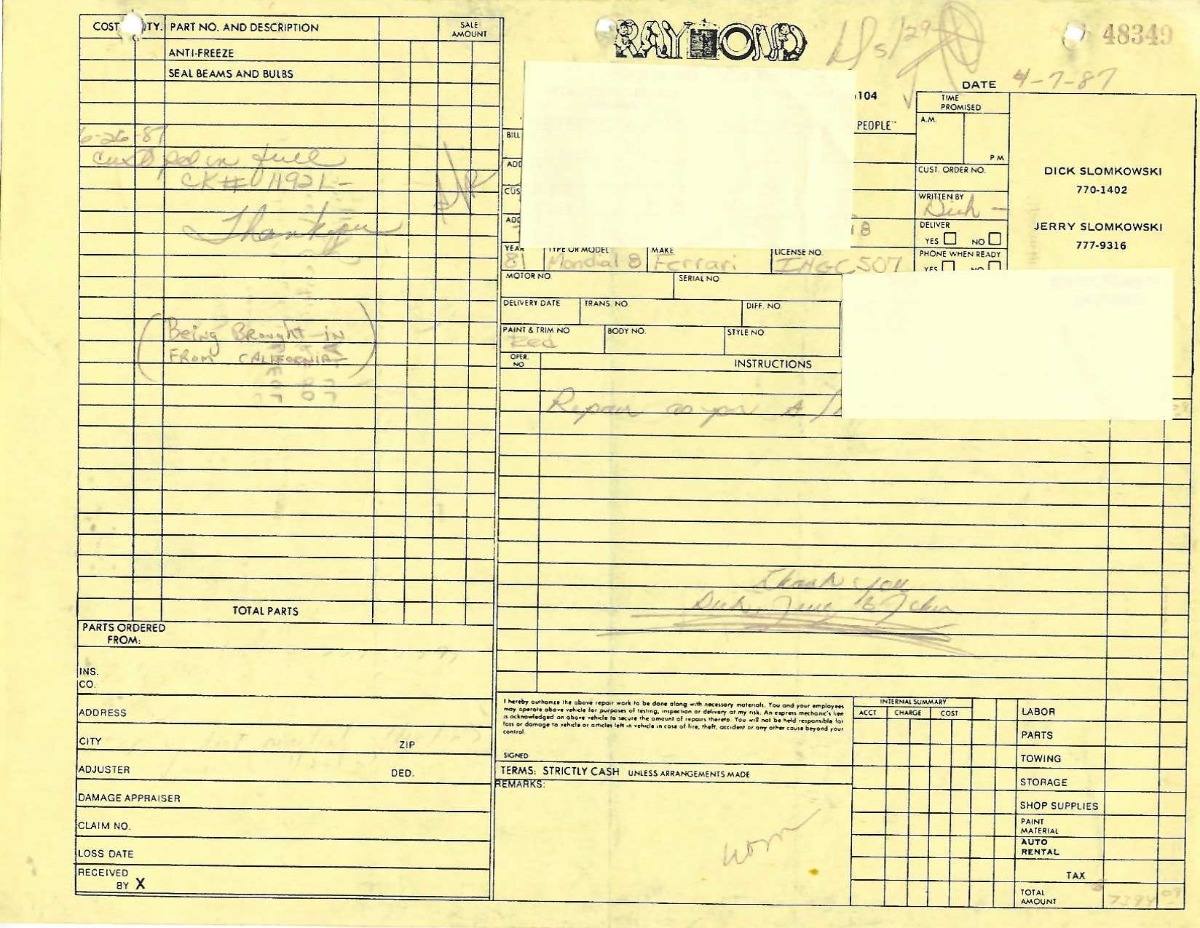 RAYMOND
48349
DATE 4-7-87
104
PEOPLE"
COST QTY. PART NO. AND DESCRIPTION SALE AMOUNT
ANTI-FREEZE
SEAL BEAMS AND BULBS
6-26-87
Cust pd in full
CK# 11921-
Thank you
(Being Brought in
FROM CALIFORNIA)
TOTAL PARTS
PARTS ORDERED
FROM:
INS.
CO.
ADDRESS
CITY ZIP
ADJUSTER DED.
DAMAGE APPRAISER
CLAIM NO.
LOSS DATE
RECEIVED
BY X
TIME PROMISED
A.M.
P M
CUST. ORDER NO.
WRITTEN BY
Dick -
DELIVER
YES NO
PHONE WHEN READY
YES NO
DICK SLOMKOWSKI
770-1402
JERRY SLOMKOWSKI
777-9316
BILL
ADD
CUS
ADD
18
YEAR TYPE OR MODEL MAKE LICENSE NO.
81 Mondial 8 Ferrari 1HGC507
MOTOR NO. SERIAL NO
DELIVERY DATE TRANS. NO DIFF. NO.
PAINT & TRIM NO BODY NO. STYLE NO.
Red
OPER. NO INSTRUCTIONS
Repair as per A/
Thank you
Dick, Jerry & John
I hereby authorize the above repair work to be done along with necessary materials. You and your employees
may operate above vehicle for purposes of testing, inspection or delivery at my risk. An express mechanic's lien
is acknowledged on above vehicle to secure the amount of repairs thereto. You will not be held responsible for
loss or damage to vehicle or articles left in vehicle in case of fire, theft, accident or any other cause beyond your
control.
SIGNED
TERMS: STRICTLY CASH UNLESS ARRANGEMENTS MADE
REMARKS:
INTERNAL SUMMARY
ACCT CHARGE COST
LABOR
PARTS
TOWING
STORAGE
SHOP SUPPLIES
PAINT
MATERIAL
AUTO
RENTAL
TAX
TOTAL
AMOUNT